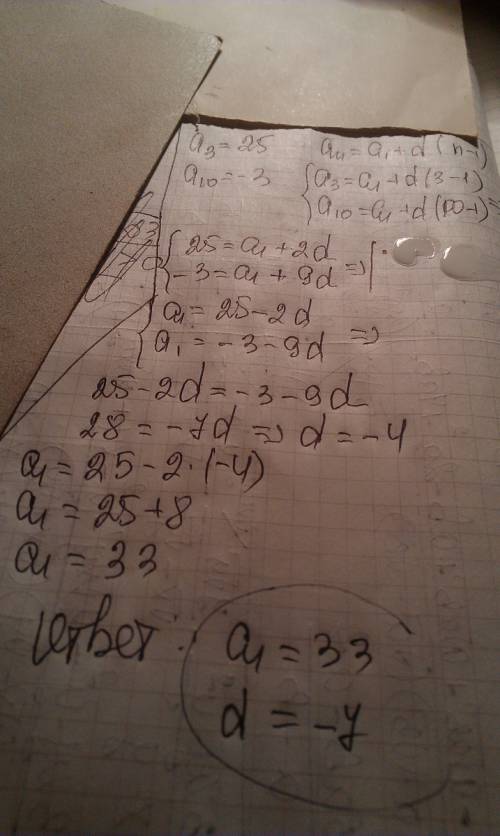 a₃ = 25 aₙ = a₁ + d(n-1)
a₁₀ = -3 { a₃ = a₁ + d(3-1)
a₁₀ = a₁ + d(10-1) =
{ 25 = a₁ + 2d
-3 = a₁ + 9d =>
{ a₁ = 25 - 2d
a₁ = -3 - 9d =>
25 - 2d = -3 - 9d
28 = -7d => d = -4
a₁ = 25 - 2·(-4)
a₁ = 25 + 8
a₁ = 33
Ответ: a₁ = 33
d = -7